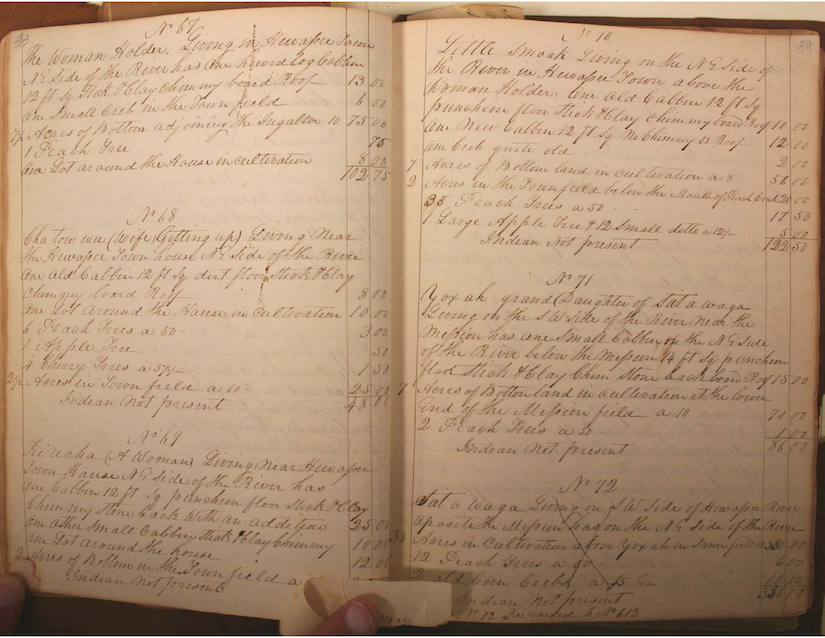 23
No 67
The Woman Holder, Living in Hewassee Town
N E Side of the River has one hewed log Cabbin
12 ft Sq Stick & Clay Chimney board Roof 13 00
one Small Crib in the Town field 6 00
7½ Acres of Bottom adjoining the Sugaltoo 10 75 00
1 Peach Tree 75
one Lot around the House in cultivation 8 00
102 75
No 68
Cha tow wee (Wife Getting up) Living Near
the Hewassee Town house N E Side of the River
one Old Cabbin 12 ft Sq dirt floor Stick & Clay
Chimney board Roof 8 00
one Lot around the House in Cultivation 10 00
6 Peach Trees a 50 3 00
1 Apple Tree 50
4 Cherry Trees a 37½ 1 50
2½ Acres in Town field a 10 25 00
Indian Not present 48 00
No 69
(A Woman) Living Near Hewassee
Town House N E Side of the River has
one Cabbin 12 ft Sq puncheon floor Stick & Clay
Chimney Stone back With an addition 25 00
one other Small Cabbin Stick & Clay Chimney 10 00
one Lot around the house 12 00
2 Acres of Bottom in the Town field a
Indian Not present
24
No 70
Little Smoak Living on the N E Side of
the River in Hewassee Town above the
Woman Holder, One Old Cabbin 12 ft Sq
puncheon floor Stick & Clay Chimney board Roof 10 00
one New Cabbin 12 ft Sq No Chimney or Roof 12 00
one Crib quite old 2 00
7 Acres of Bottom land in cultivation a 8 56 00
2 Acres in the Town field below the Mouth of Creek 20 00
35 Peach Trees a 50 17 50
1 Large Apple Tree & 12 Small ditto a 12½ 5 00
Indian Not present 122 50
No 71
Yox ah grand Daughter of Sut a waga
Living on the S W Side of the River Near the
Mission has one Small Cabbin on the N E Side
of the River below the Mission 14 ft Sq puncheon
floor Stick & Clay Chim Stone back board Roof 15 00
7 Acres of Bottom land in cultivation at the lower
End of the Mission field a 10 70 00
2 Peach Trees a 50 1 00
Indian Not present 86 00
No 72
Sut a waga Living on S W Side of Hewassee River
aposite the Mission has on the N E Side of the River
38 Acres in Cultivation above Yox ah in Same field
12 Peach Trees a 50 6 00
2 old Corn Cribs a 5 Ea 10 00
Indian Not present
No 72 to No 613